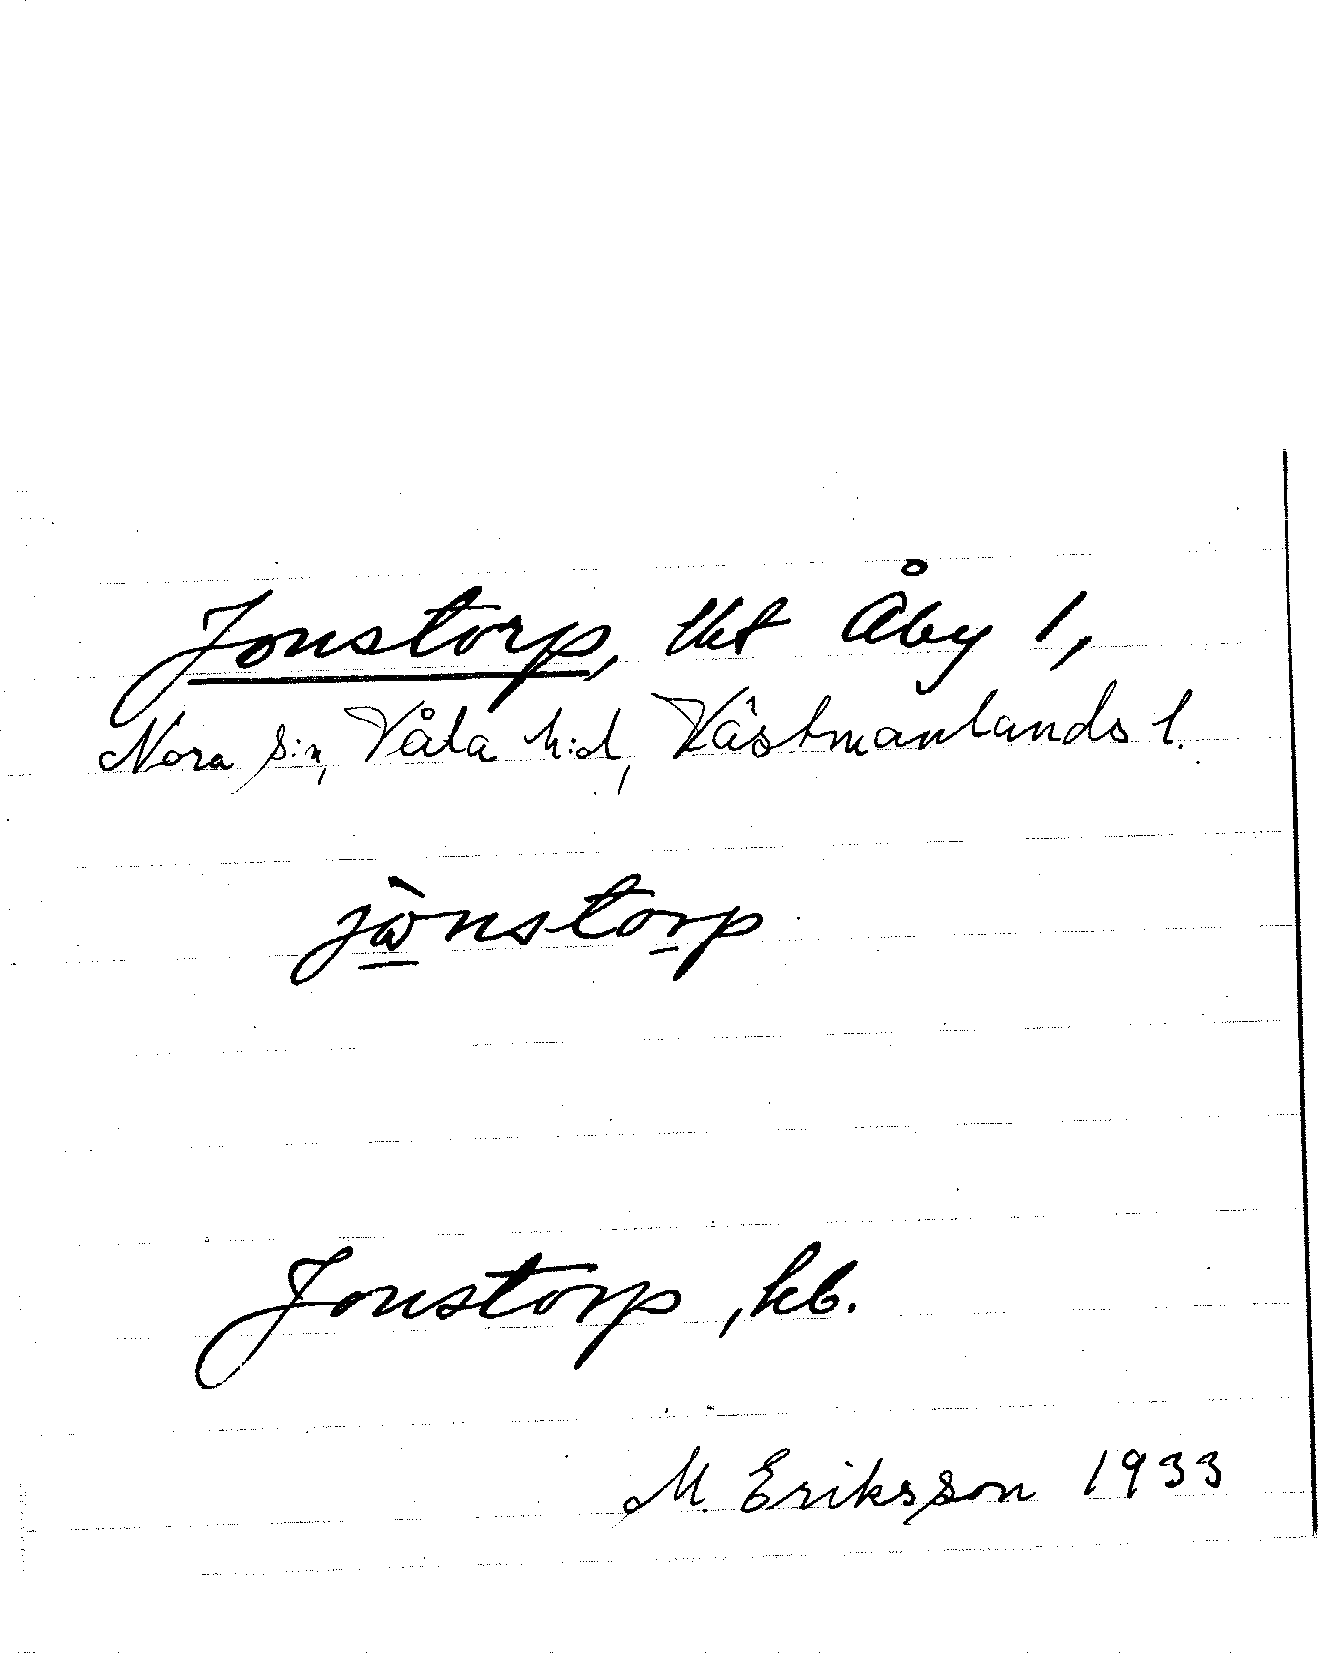 Jonstorp, lht Åby 1,
Nora s:n, Våla h:d, Västmanlands l.
jὼnstorp
Jonstorp, kb.
M. Eriksson 1933